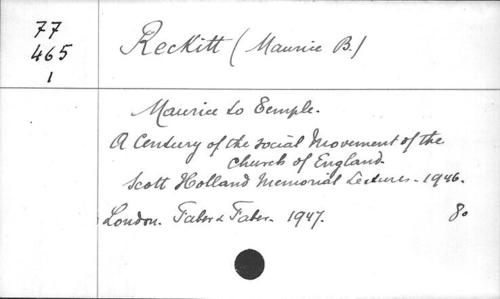 77
465
1
Reckitt (Maurice B.)
Maurice to Temple.
A Century of the Social Movement of the
Church of England.
Scott Holland Memorial Lectures - 1946.
London. Faber & Faber - 1947. 8o